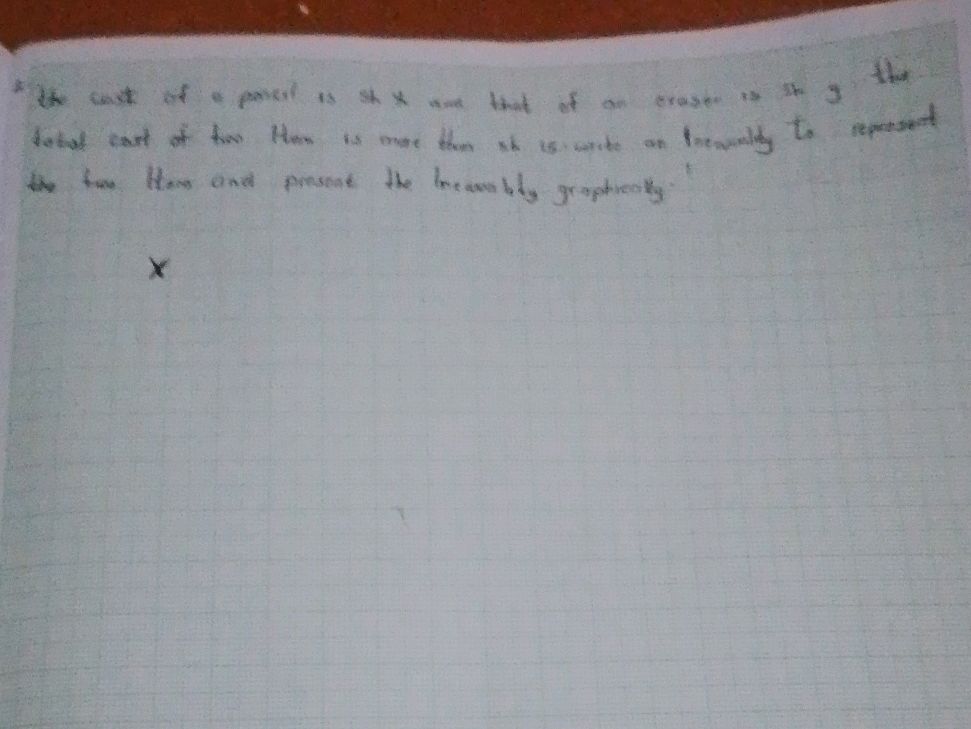 * the cost of a pencil is sh x and that of an eraser is sh y the
total cost of two Item is more than sh 15. write an Inequality to represent
the two Item and present the Inequality graphically.
x